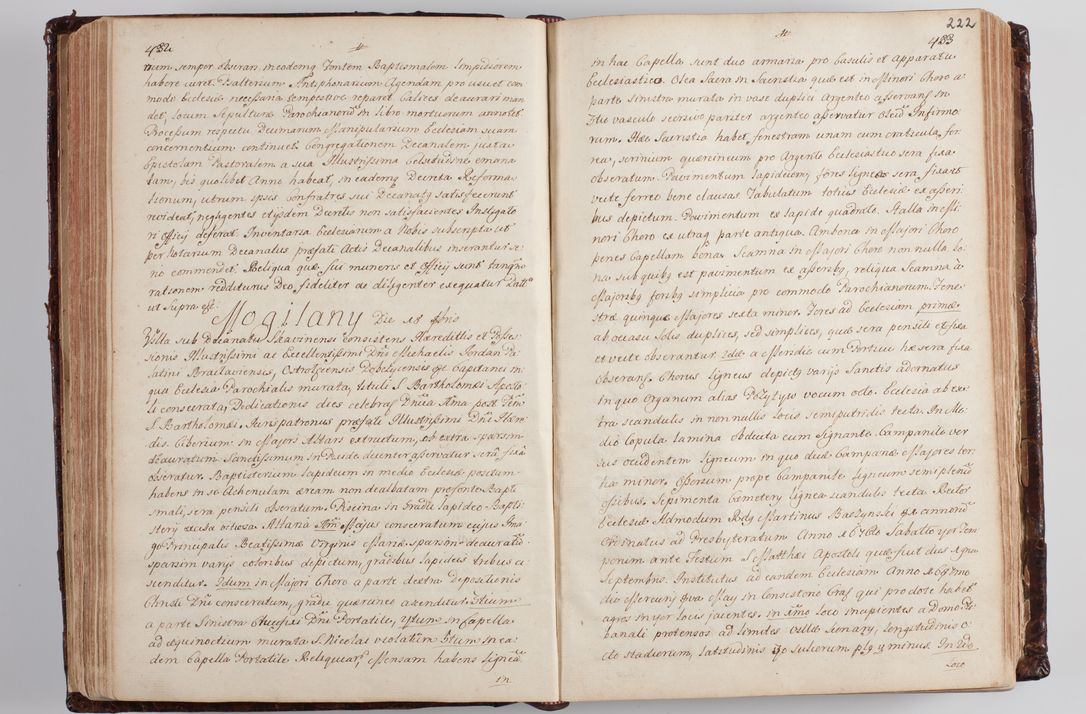 432
num semper observari, in eodemq fontem Baptismalem limpidiorem
habere curet. Psalterium Antiphonarium Agendam pro usu et com
modo Ecclesiæ necessaria tempestive reparet. Calices deaurari man
det, locum sepulturæ Parochianorũ in libro mortuorum annotet.
Processum respectu Decimarum Manipularium Ecclesiam suam
concernentium continuet. Congregationem Decanalem juxta
Epistolam Pastoralem a sua Illustrissima Celsitudine emana
tam, bis quolibet Anno habeat, in eademq Decreta Reforma
tionum, utrum ipsis Confratres sui Decanatq satisfecerunt
revideat, negligentes ejusdem Decretis non satisfacientes Instigato
ri Officij deferat. Inventaria Ecclesiarum a Nobis subscripta ut
per Notarium Decanatus præfati Actis Decanalibus inserantur se
rio commendet. Reliqua quæ sui muneris et Officij sunt tanqm
rationem redditurus Deo fideliter ac diligenter exequatur Datt
ut supra est.
Mogilany Die 18
Villa sub Decanatu Skavinensi consistens Hæreditis et Posses
sionis Illustrissimi ac Excellentissimi Dni Michaelis Jordan Pa
latini Braclaviensis, Capitanei in
qua Ecclesia Parochialis murata, tituli S. Bartholomæi Aposto
li consecrata, Dedicationis dies celebrat Dnica post
S. Bartholomæi. Jurispatronus præfati Illustrissimi Dni Hæré
dis. Ciborium in Majori Altari extructum, ab extra sparsim
deauratum. Sanctissimum in Pixide decenter asservatur, fixa
observatur. Baptisterium lapideum in medio Ecclesiæ positum
habens in se Ahenulam æream non dealbatam pro fonte Bapti
smali, sera pensili observatum. Piscina in Gradu lapideo Bapti
sterij excisa Altaria Majus consecratum cujus Ima
go Principalis Beatissimæ Virginis Mariæ sparsim deaurata
sparsim varijs coloribus depictum, gradibus lapideis tribus a
scenditur. 2dum in Majori Choro a parte dextra Depositionis
Christi Dni consecratum, gradu quærcineo ascenditur. 3tium
a parte Sinistra Crucifixi Dni Portatile, in Capella
ad æquinoctium murata S. Nicolai violatum Item in ea
dem Capella Portatile Mensam habens ligneã
in
222
433
in hac Capella sunt duo armaria pro Casulis et apparatu
Ecclesiastico. Olea Sacra in Sacristia quæ est in Minori Choro a
parte sinistra murata in vase duplici Argenteo asservans in
3tio vasculo seorsivo pariter argenteo asservatur Infirmo
rum. Hæc Sacristia habet fenestram unam cum craticula fer
rea, scrinium quærcineum pro Argento Ecclesiastico sera fixa
observatum. Pavimentum lapideum, fores ligneæ sera fixa et
vecte ferreo bene clausas. Tabulatum totius Ecclesiæ ex asseri
bus depictum. Pavimentum ex lapide quadrato. Stalla in Mi
nori Choro ex utraq parte antiqua. Ambona in Majori Choro
penes Capellam bona. Scamna in Majori Choro non nulla bo
na sub quibq est pavimentum ex asseribq, reliqua Scamna à
Majoribq foribq simplicia pro commodo Parochianorum. Fene
stræ quinque Majores sexta minor. Fores ad Ecclesiam primæ
ab occasu Solis duplices, sed simplices, quæ sera pensili et fixa
et vecte observantur. 2dæ a Meridie cum Porticu hæ sera fixa
observans. Chorus ligneus depictq varijs Sanctis adornatus
in quo Organum alias Pozytyw vocum octo. Ecclesia ab ex
tra scandulis in non nullis locis semiputridis tecta. In Me
dio Copula lamina obducta cum signante. Campanile ver
sus occidentem ligneum in quo duæ Campanæ Majores ter
tia minor. Ossorium prope Campanile ligneum semiplenũ
ossibus. Sepimenta Cemetery lignea scandulis tecta. Rector
Ecclesiæ Admodum Rndq Martinus Baszynski ex
Ordinatus ad Presbyteratum Anno Sabatto Tem
porum ante Festum S. Matthæi Apostoli quæ fuit dies
Septembris. Institutus ad eandem Ecclesiam Anno
die Mercurij May in Consistorio Crac̃ qui pro dote habet
agros in locis jacentes. in Imo Loco incipientes a domo Ple
banali protensos ad limites villæ Sieraczy, longitudinis o
cto stadiorum, latitudinis 30 sulcorum plq minus. In 2do
Loco